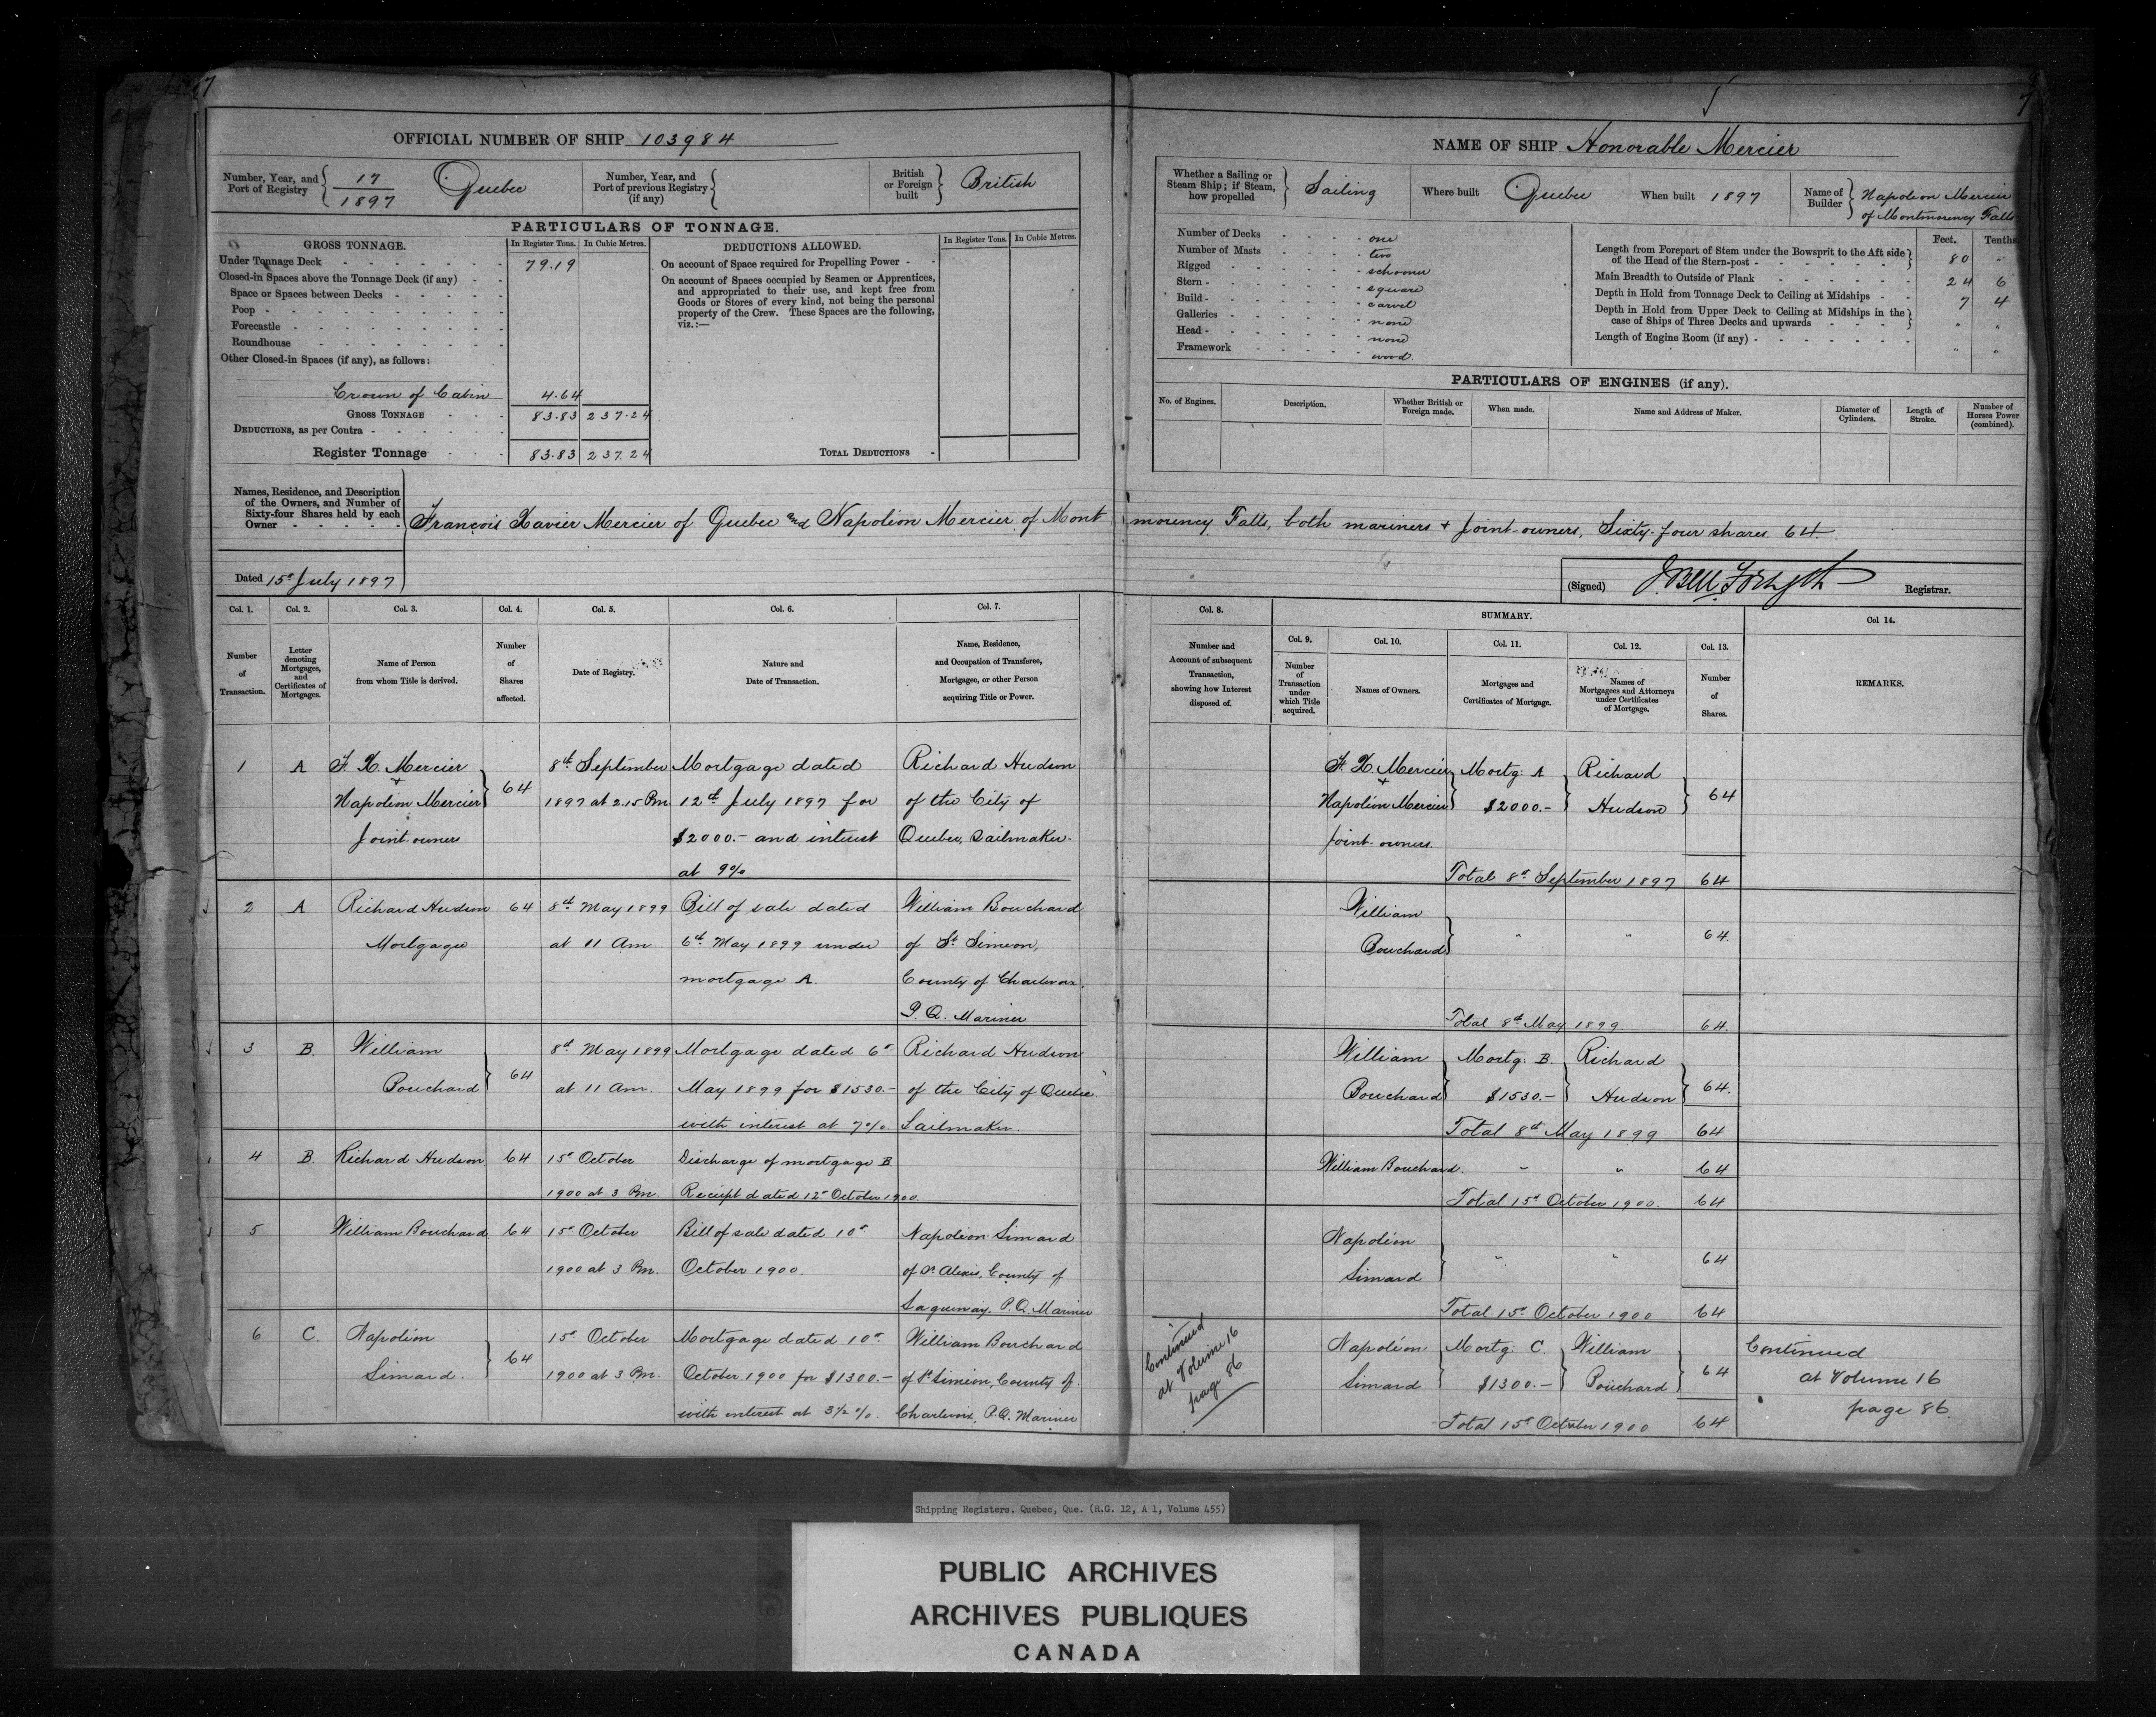 7
OFFICIAL NUMBER OF SHIP 103984
Number, Year, and Port of Registry 17/1897 Quebec
Number, Year, and Port of previous Registry (if any)
British or Foreign built British
PARTICULARS OF TONNAGE.
GROSS TONNAGE. In Register Tons. In Cubic Metres.
Under Tonnage Deck 79.19
Closed-in Spaces above the Tonnage Deck (if any)
Space or Spaces between Decks
Poop
Forecastle
Roundhouse
Other Closed-in Spaces (if any), as follows:
Crown of Cabin 4.64
GROSS TONNAGE 83.83 237.24
DEDUCTIONS, as per Contra
Register Tonnage 83.83 237.24
DEDUCTIONS ALLOWED. In Register Tons. In Cubic Metres.
On account of Space required for Propelling Power
On account of Spaces occupied by Seamen or Apprentices,
and appropriated to their use, and kept free from
Goods or Stores of every kind, not being the personal
property of the Crew. These Spaces are the following,
viz.:—
TOTAL DEDUCTIONS
7
NAME OF SHIP Honorable Mercier
Whether a Sailing or Steam Ship; if Steam, how propelled Sailing
Where built Quebec
When built 1897
Name of Builder Napoleon Mercier
of Montmorency Falls
Number of Decks one
Number of Masts two
Rigged schooner
Stern square
Build carvel
Galleries none
Head none
Framework wood.
Feet. Tenths
Length from Forepart of Stem under the Bowsprit to the Aft side
of the Head of the Stern-post 80 "
Main Breadth to Outside of Plank 24 6
Depth in Hold from Tonnage Deck to Ceiling at Midships 7 4
Depth in Hold from Upper Deck to Ceiling at Midships in the
case of Ships of Three Decks and upwards " "
Length of Engine Room (if any) " "
PARTICULARS OF ENGINES (if any).
No. of Engines. Description. Whether British or Foreign made. When made. Name and Address of Maker. Diameter of Cylinders. Length of Stroke. Number of Horses Power (combined).
Names, Residence, and Description
of the Owners, and Number of
Sixty-four Shares held by each
Owner
François Xavier Mercier of Quebec and Napoléon Mercier of Montmorency Falls, both mariners + Joint owners, Sixty-four shares 64
Dated 15th July 1897
(Signed) J. Bell Forsyth Registrar.
Col. 1. Col. 2. Col. 3. Col. 4. Col. 5. Col. 6. Col. 7.
Number of Transaction.
Letter denoting Mortgages, and Certificates of Mortgages.
Name of Person from whom Title is derived.
Number of Shares affected.
Date of Registry.
Nature and Date of Transaction.
Name, Residence, and Occupation of Transferee, Mortgagee, or other Person acquiring Title or Power.
Col. 8. SUMMARY. Col 14.
Col. 9. Col. 10. Col. 11. Col. 12. Col. 13.
Number and Account of subsequent Transaction, showing how Interest disposed of.
Number of Transaction under which Title acquired.
Names of Owners.
Mortgages and Certificates of Mortgage.
Names of Mortgagees and Attorneys under Certificates of Mortgage.
Number of Shares.
REMARKS.
1 A F. X. Mercier 64 8th September Mortgage dated Richard Hudson
+
Napoléon Mercier 1897 at 2.15 Pm 12th July 1897 for of the City of
Joint owners $2000.- and interest Quebec, Sailmaker.
at 9%
F. X. Mercier Mortg. A Richard 64
+
Napoléon Mercier $2000.- Hudson
Joint owners.
Total 8th September 1897 64
2 A Richard Hudson 64 8th May 1899 Bill of sale dated William Bouchard
Mortgagee at 11 Am 6th May 1899 under of St Simeon,
mortgage A. County of Charlevoix,
P. Q. Mariner
William
Bouchard " " 64.
Total 8th May 1899. 64.
3 B. William 64 8th May 1899 Mortgage dated 6th Richard Hudson
Bouchard at 11 Am. May 1899 for $1530.- of the City of Quebec.
with interest at 7%. Sailmaker.
William Mortg. B. Richard
Bouchard $1530.- Hudson 64.
Total 8th May 1899 64
4 B. Richard Hudson 64 15th October Discharge of mortgage B.
1900 at 3 Pm. Receipt dated 12th October 1900.
William Bouchard. " " 64
Total 15th October 1900. 64
5 William Bouchard 64 15th October Bill of sale dated 10th Napoléon Simard
1900 at 3 Pm. October 1900. of St Alexis, County of
Saguenay. P.Q. Mariner
Napoléon
Simard " " 64
Total 15th October 1900 64
6 C. Napoléon 64 15th October Mortgage dated 10th William Bouchard
Simard. 1900 at 3 Pm. October 1900 for $1300.- of St Simeon, County of
with interest at 3½%. Charlevoix, P.Q. Mariner
Continued
at Volume 16
page 86
Napoléon Mortg. C. William
Simard $1300.- Bouchard 64
Total 15th October 1900 64
Continued
at Volume 16
page 86.
Shipping Registers. Quebec, Que. (R.G. 12, A 1, Volume 455)
PUBLIC ARCHIVES
ARCHIVES PUBLIQUES
CANADA